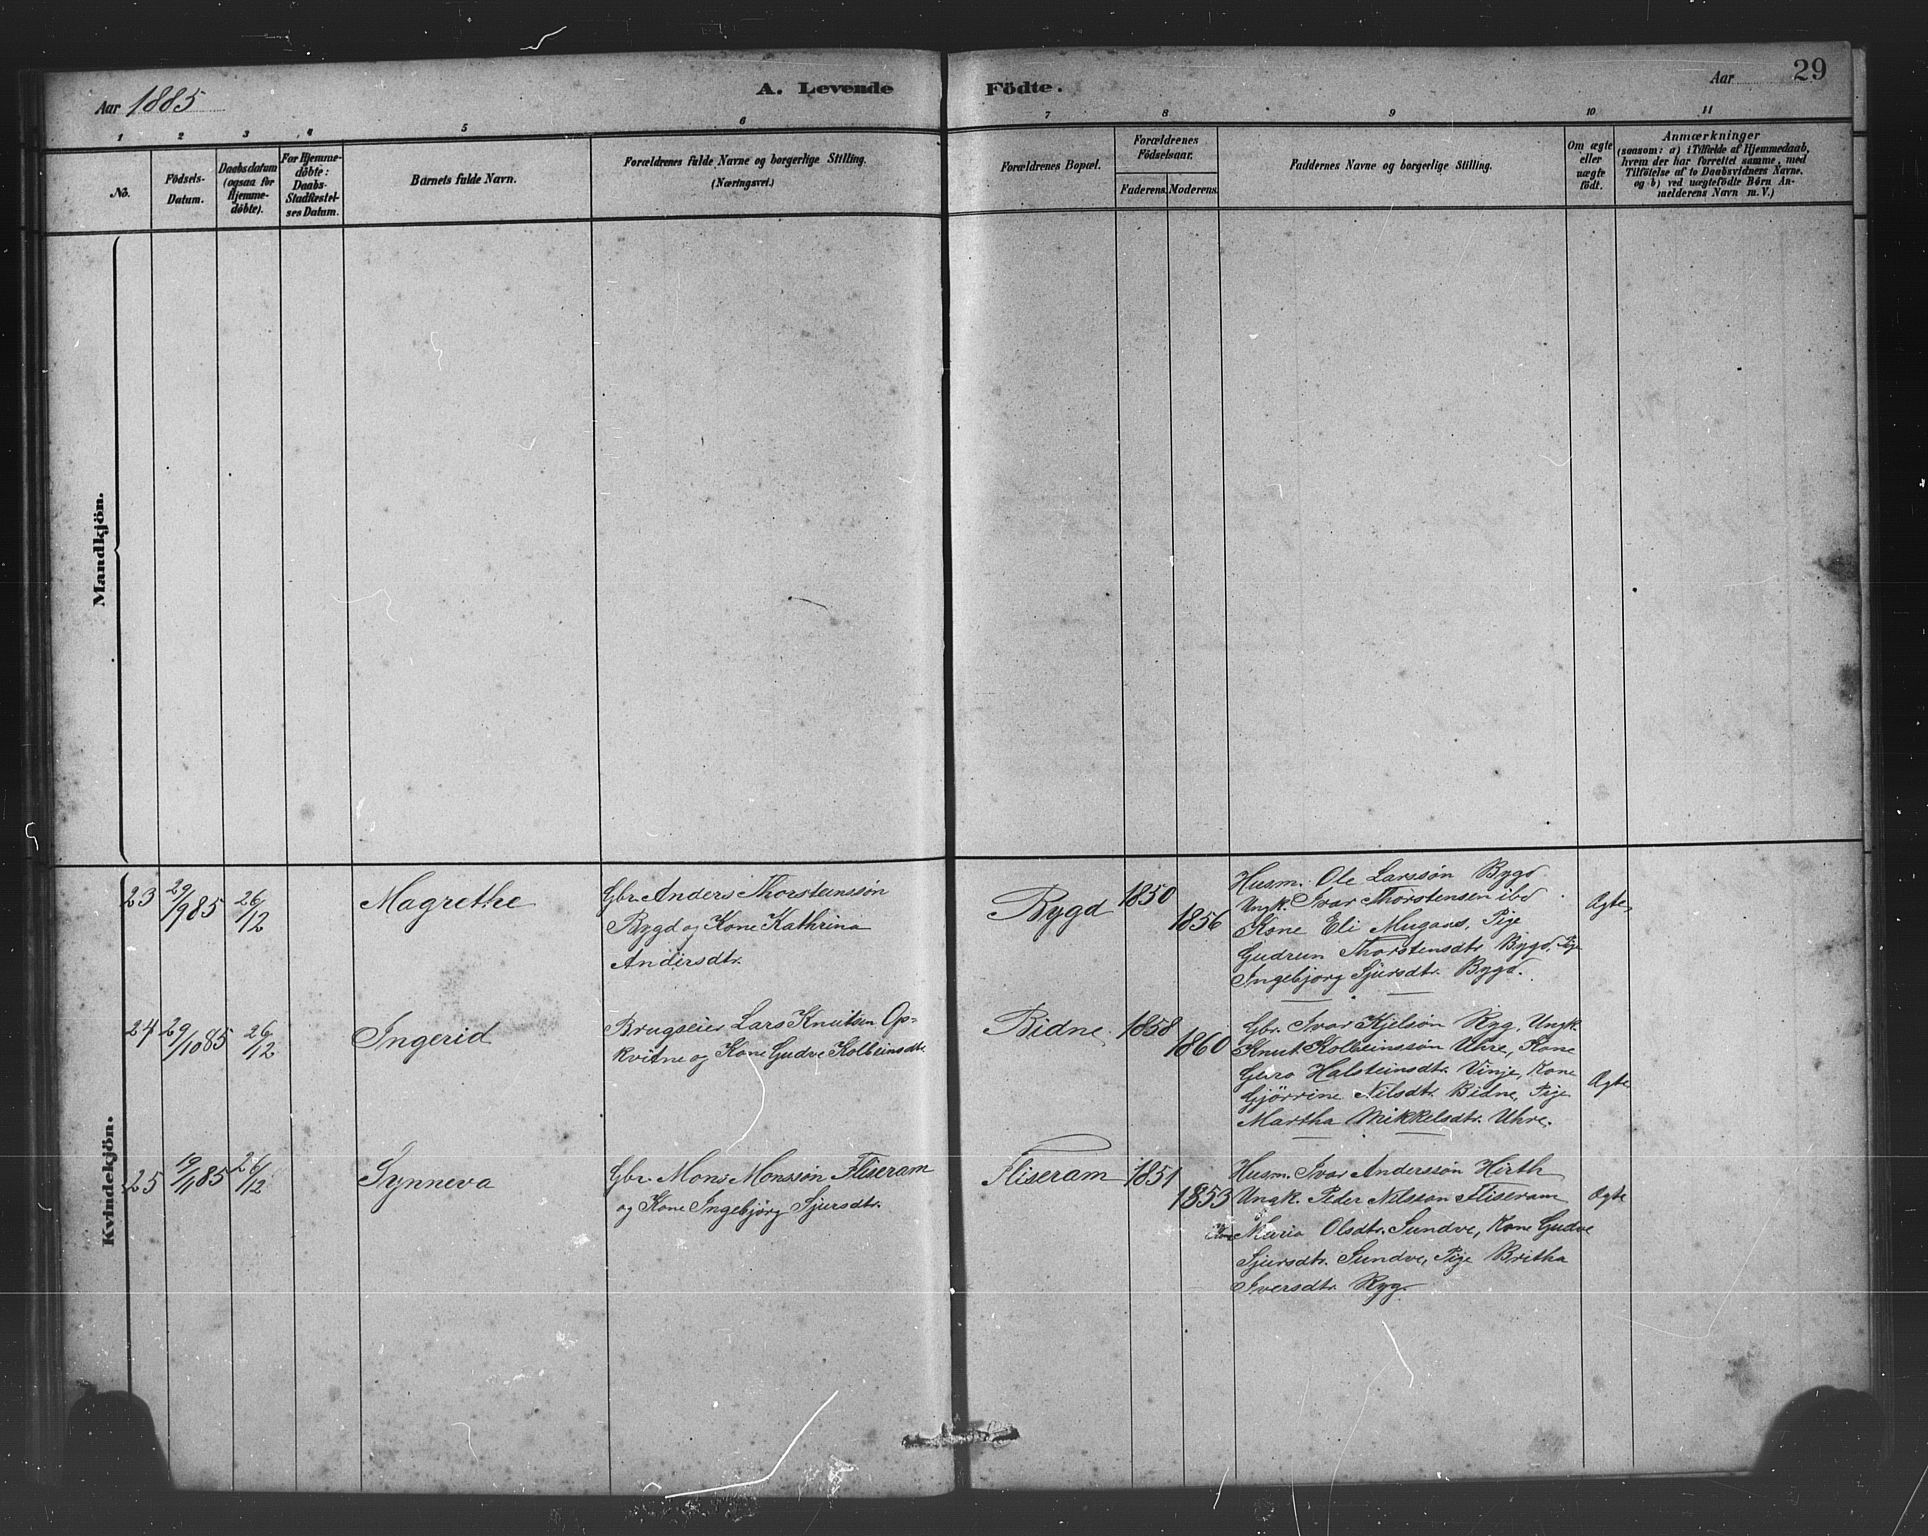 Aar 1885
A. Levende Födte.
Aar
29
1 2 3 4 5 6 7 8 9 10 11
No.
Födsels-
Datum.
Daabsdatum
(ogsaa for
Hjemme-
döbte).
For Hjemme-
döbte:
Daabs-
Stadfæstel-
ses Datum.
Barnets fulde Navn.
Forældrenes fulde Navne og borgerlige Stilling.
(Næringsvei.)
Forældrenes Bopæl.
Forældrenes
Födselsaar.
Faderens. Moderens.
Faddernes Navne og borgerlige Stilling.
Om ægte
eller
uægte
født.
Anmærkninger
(saasom: a) i Tilfælde af Hjemmedaab,
hvem der har forrettet samme, med
Tilföielse af to Daabsvidners Navne,
og b) ved uægtefödte Börn An-
melderens Navn m. V.)
Mandkjön.
Kvindekjön.
23 29/9 85 26/12 Magrethe
Gbr. Anders Thorsteinssön
Bygd og Kone Kathrina
Andersdtr.
Bygd 1850 1856
Husm. Ole Larssön Bygd
Ungk. Ivar Thorstensen ibd
Kone Eli Mugaas, Pige
Gudrun Thorstensdtr. Bygd, Pige
Ingebjorg Sjursdtr. Bygd.
Ægte
24 29/10 85 26/12 Ingerid
Brugseier Lars Knutsen Op-
kvitne og Kone Gudve Kolbeinsdtr
Bidne 1858 1860
Gbr. Ivar Kjelsön Ryg, Ungk.
Knut Kolbeinssön Uhre, Kone
Guro Halsteinsdtr. Vinje, Kone
Gjörrine Nilsdtr. Bidne, Pige
Martha Mikkelsdtr. Uhre.
Ægte
25 19/11 85 26/12 Synneva
Gbr. Mons Monssön Fliseram
og Kone Ingebjörg Sjursdtr.
Fliseram 1851 1853
Husm. Ivar Anderssön Hirth
Ungk. Peder Nilsson Fliseram
Kone Maria Olsdtr. Sundve, Kone Gudve
Sjursdtr. Sundve, Pige Britha
Iversdtr. Ryg.
Ægte